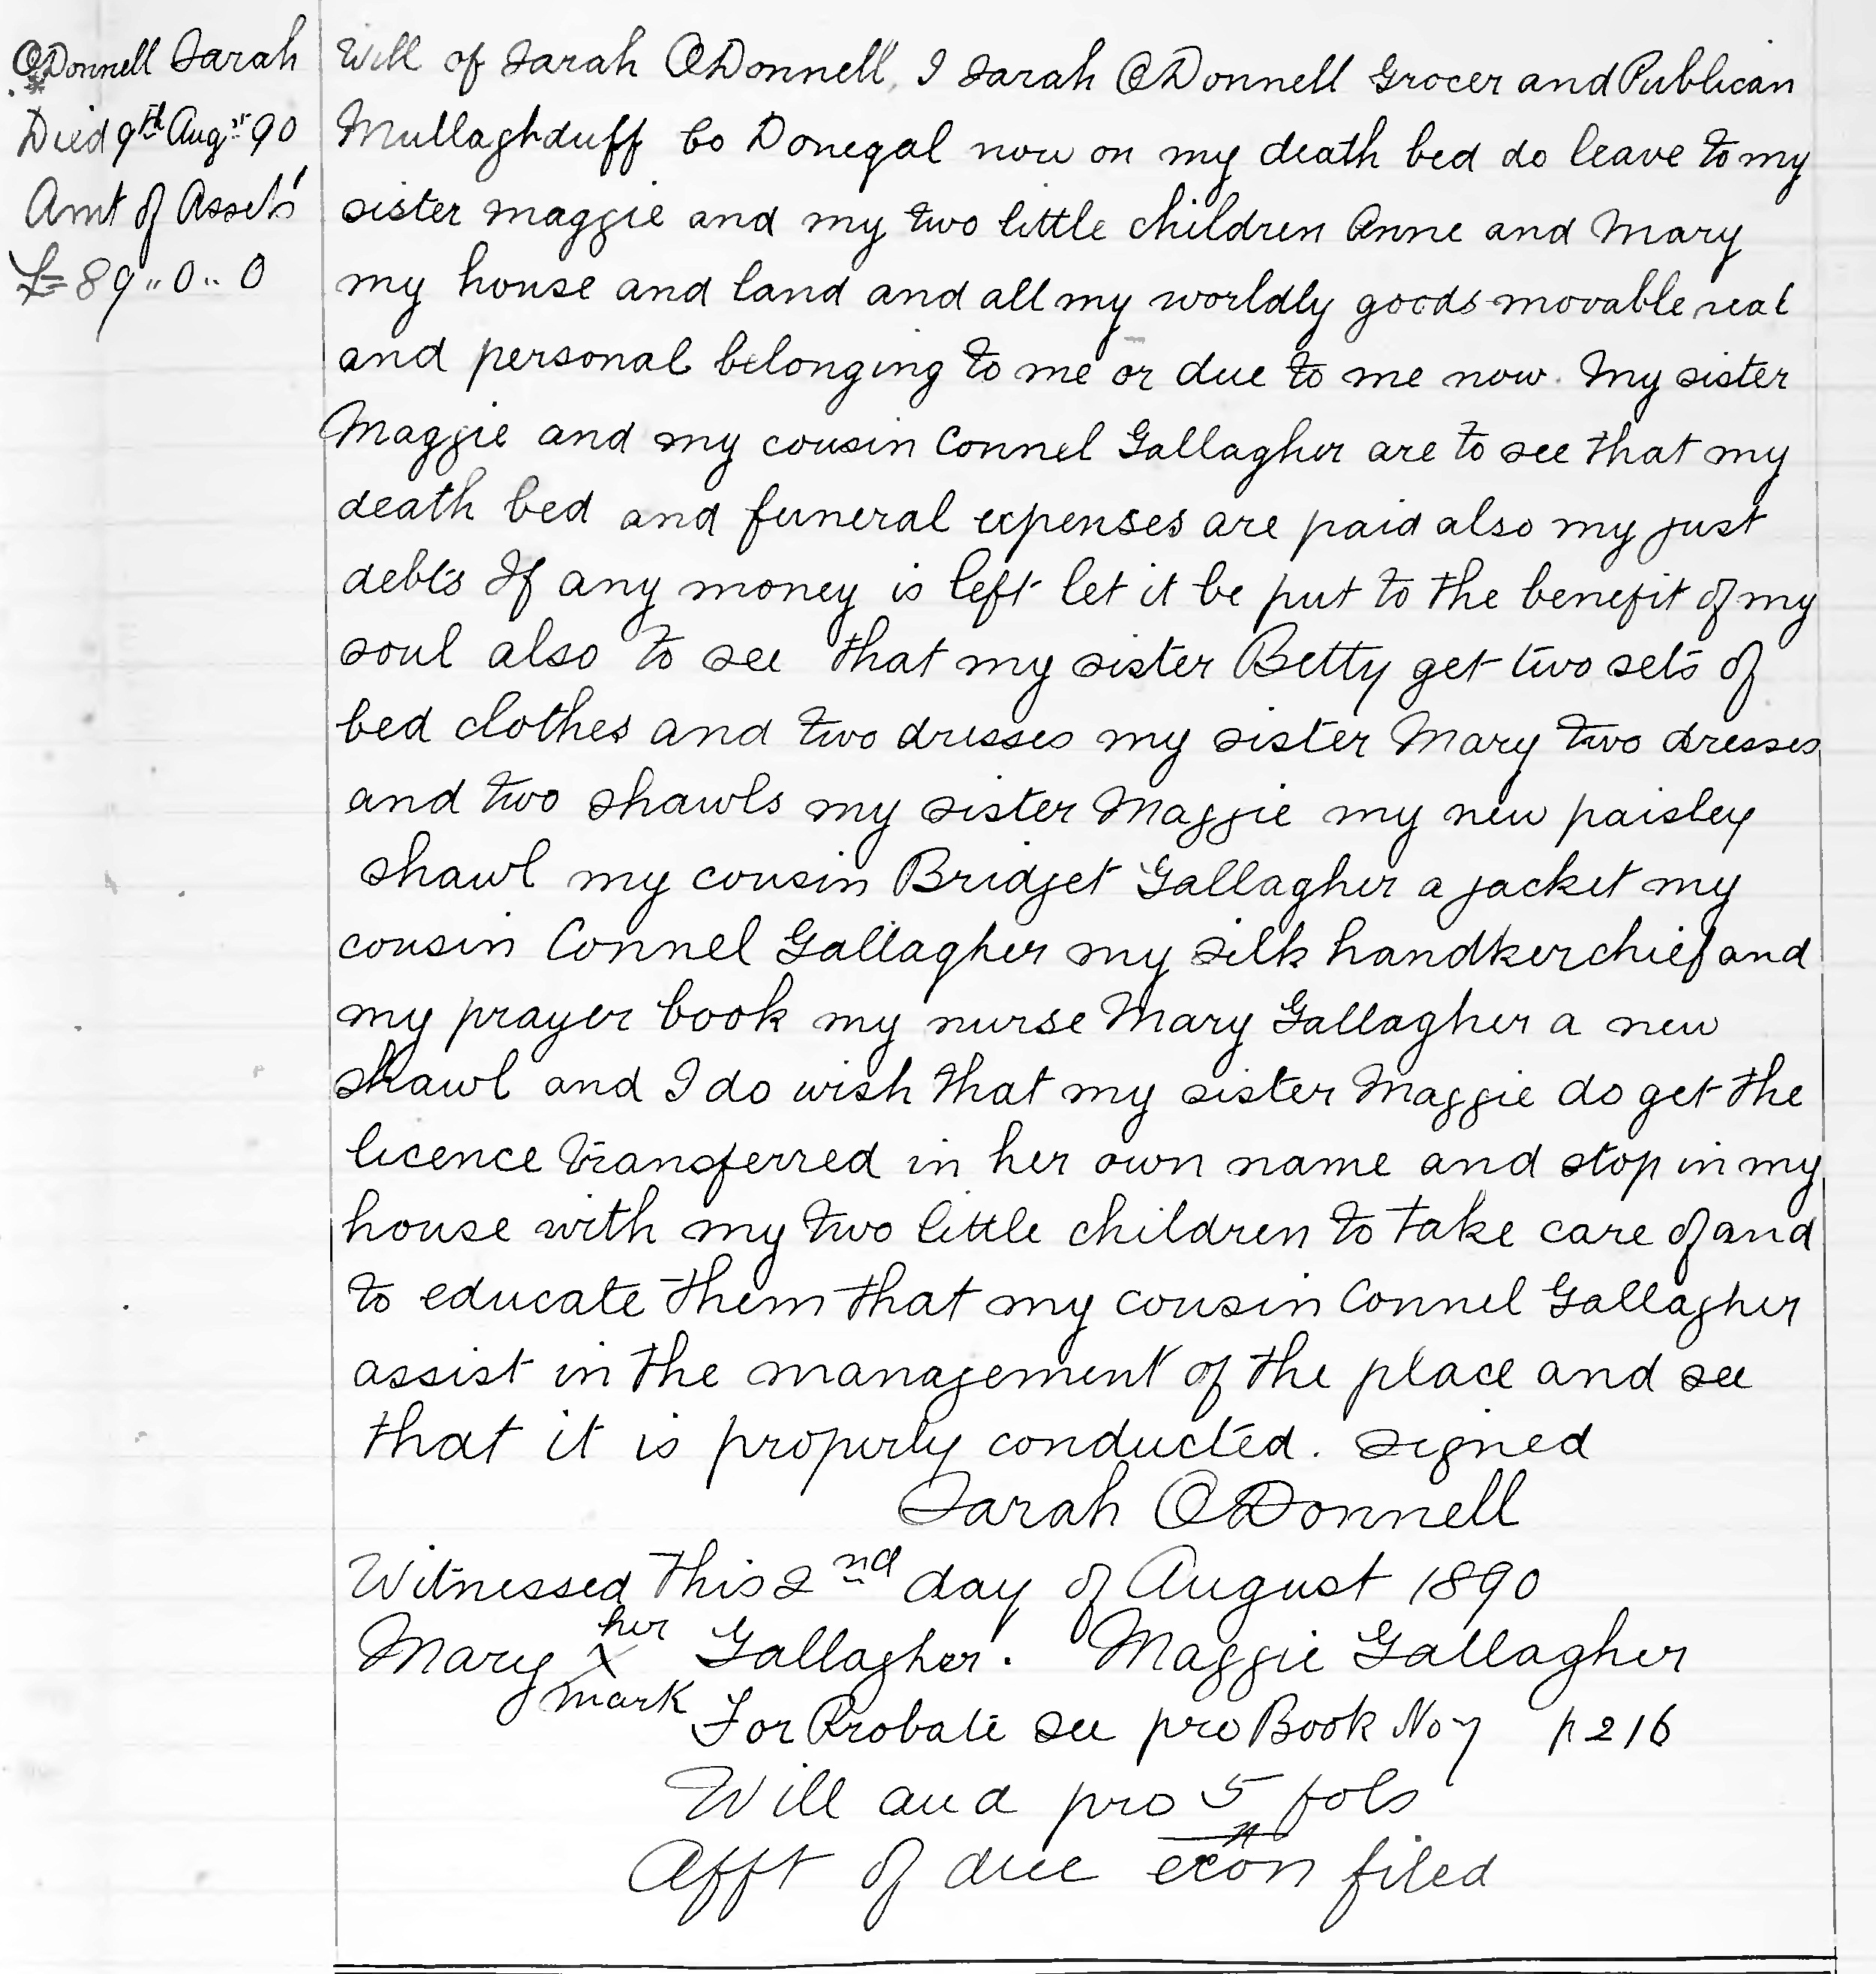 O'Donnell Sarah
Died 9th Augst 90
Amt of Assets
£89..0..0
Will of Sarah O'Donnell, I Sarah O'Donnell Grocer and Publican
Mullaghduff Co Donegal now on my death bed do leave to my
sister maggie and my two little children Anne and Mary
my house and land and all my worldly goods movable real
and personal belonging to me or due to me now. My sister
Maggie and my cousin Connel Gallagher are to see that my
death bed and funeral expenses are paid also my just
debts If any money is left let it be put to the benefit of my
soul also to see that my sister Betty get two sets of
bed clothes and two dresses my sister Mary two dresses
and two shawls my sister Maggie my new paisley
shawl my cousin Bridget Gallagher a jacket my
cousin Connel Gallagher my silk handkerchief and
my prayer book my nurse Mary Gallagher a new
shawl and I do wish that my sister Maggie do get the
licence transferred in her own name and stop in my
house with my two little children to take care of and
to educate them that my cousin Connel Gallagher
assist in the management of the place and see
that it is properly conducted. Signed
Sarah O'Donnell
Witnessed this 2nd day of August 1890
Mary her X mark Gallagher. Maggie Gallagher
For Probate see pro Book No 7 p 216
Will and pro 5 fols
Afft of due exon filed